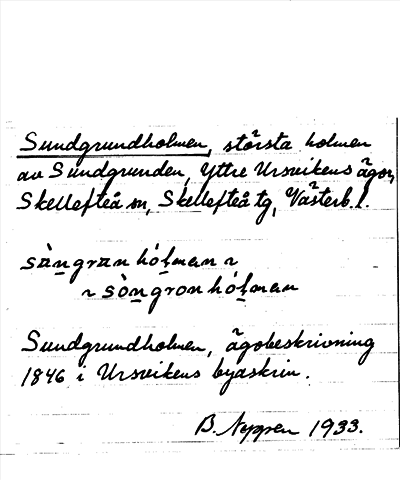 Sundgrundholmen, största holmen
av Sundgrunden, Yttre Ursvikens ägor,
Skellefteå sn, Skellefteå tg, Västerb. l.
sàn̲granhól̲man ~
~ sòn̲gronhól̲man
Sundgrundholmen, ägobeskrivning
1846 i Ursvikens byaskrin.
B. Nygren 1933.